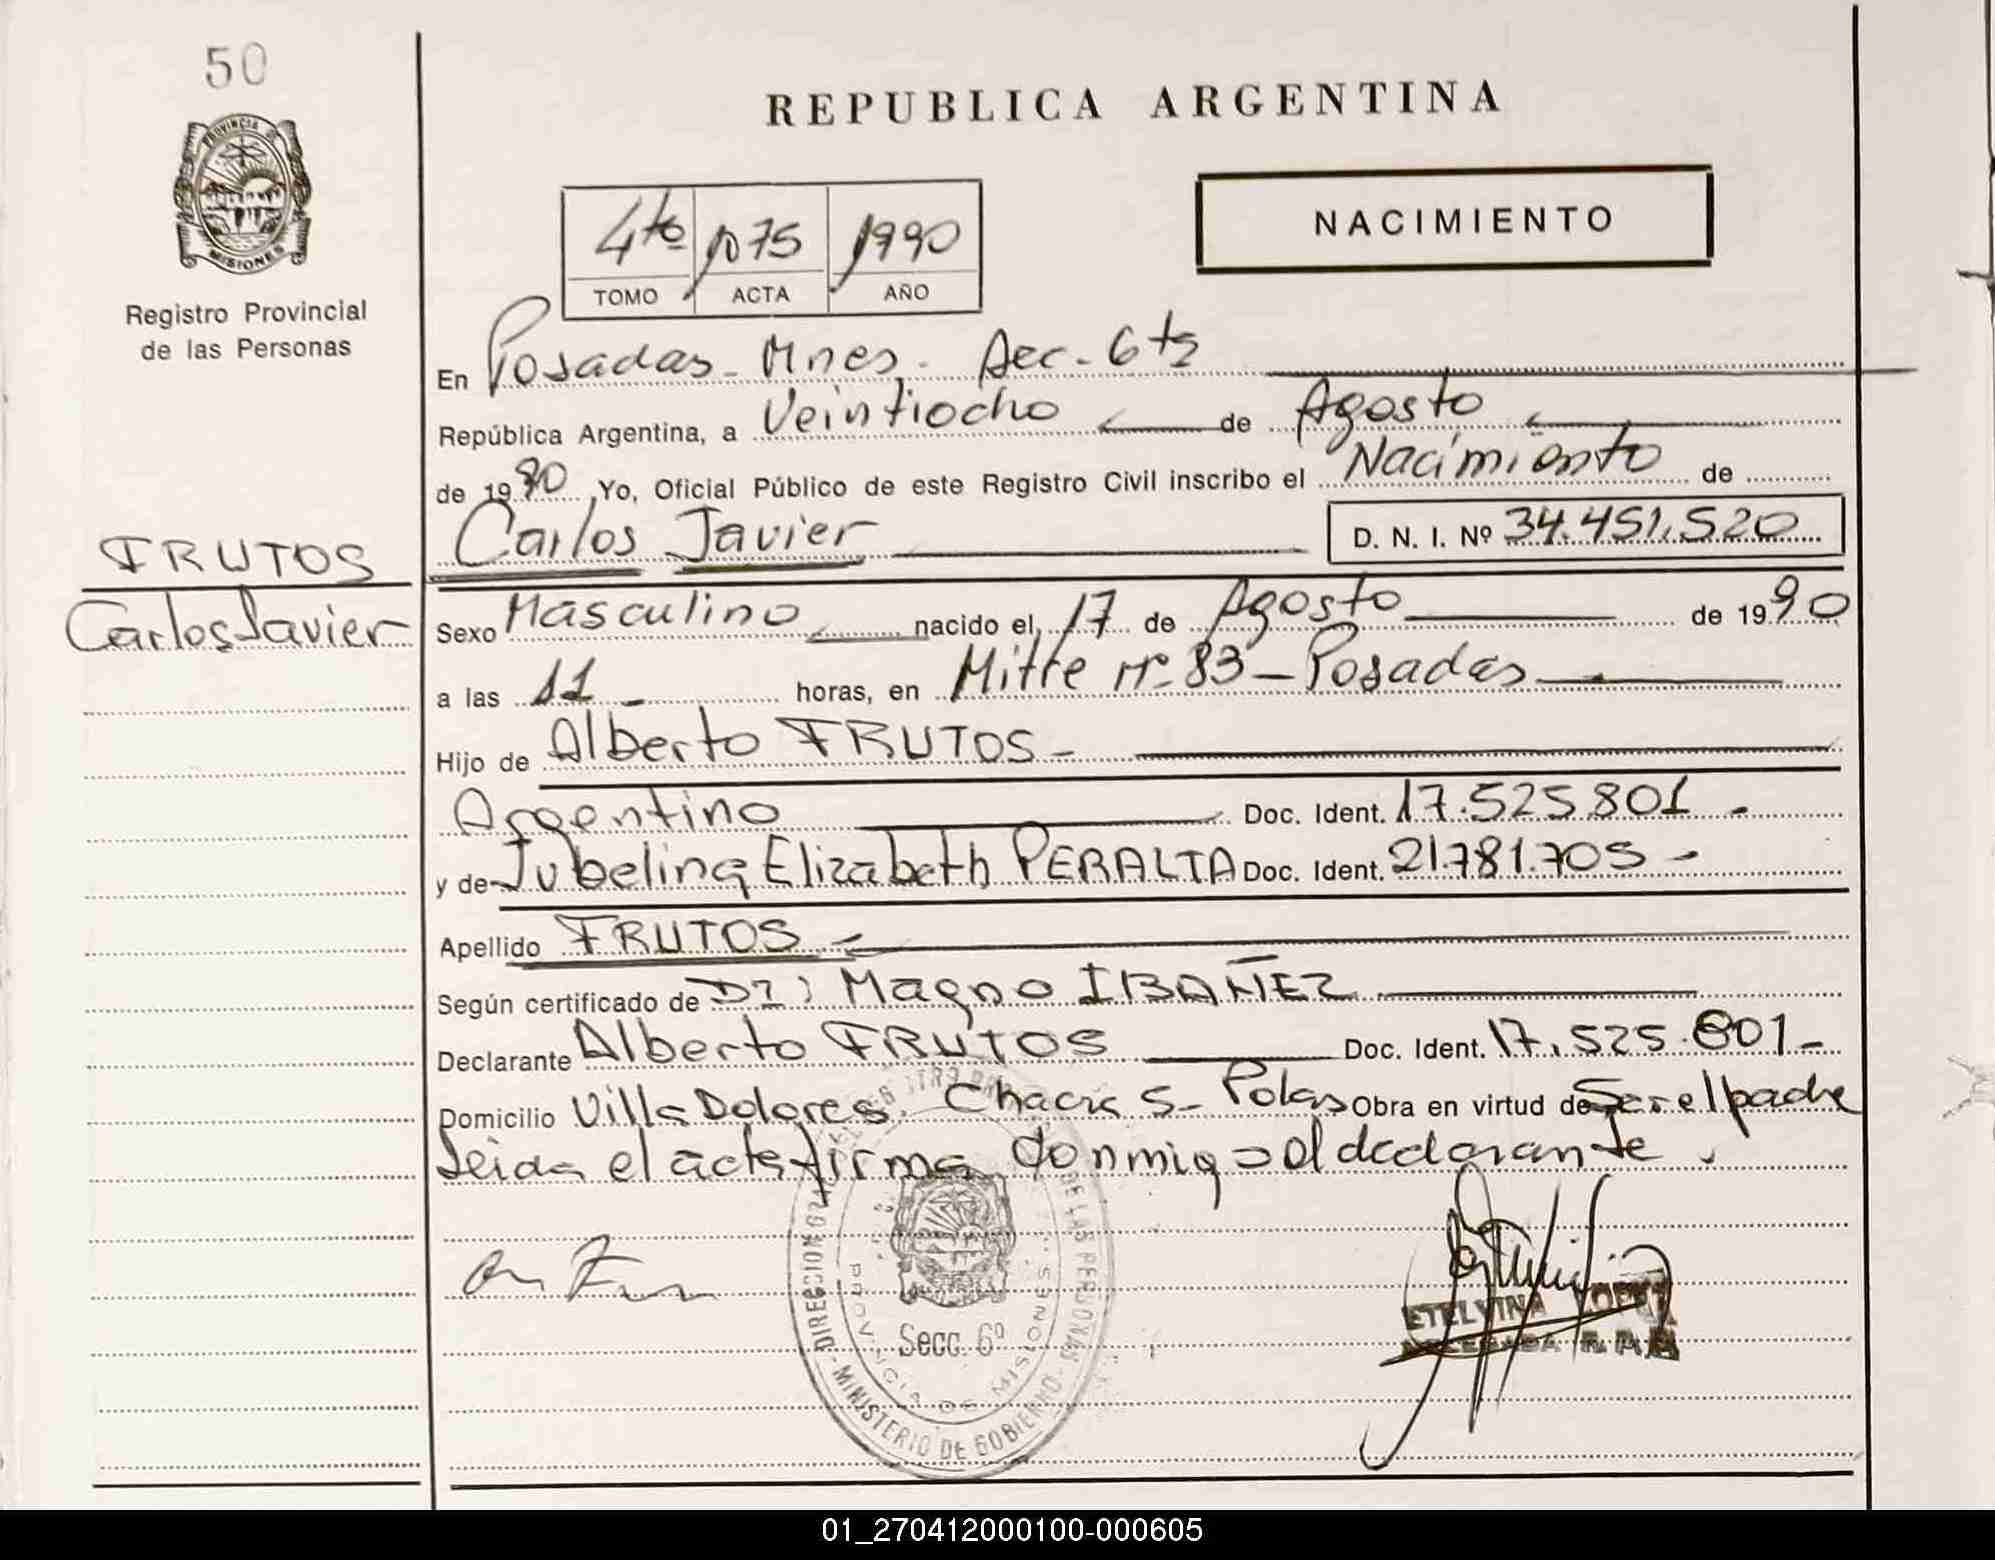 50
REPUBLICA ARGENTINA
PROVINCIA DE
MISIONES
Registro Provincial
de las Personas
NACIMIENTO
4to 1075 1990
TOMO ACTA AÑO
En Posadas - Mnes. Sec. 6ta
República Argentina, a Veintiocho de Agosto
de 1990 Yo, Oficial Público de este Registro Civil inscribo el Nacimiento de
Carlos Javier D. N. I. Nº 34.451.520
FRUTOS
Carlos Javier
Sexo Masculino nacido el 17 de Agosto de 1990
a las 11 horas, en Mitre Nº 83 - Posadas
Hijo de Alberto FRUTOS -
Argentino Doc. Ident. 17.525.801 -
y de Jubelina Elizabeth PERALTA Doc. Ident. 21.781.705 -
Apellido FRUTOS -
Según certificado de Dr: Magno IBAÑEZ
Declarante Alberto FRUTOS Doc. Ident. 17.525.801 -
Domicilio Villa Dolores. Chacra 5 - Obra en virtud de Ser el padre
Leida el acta firma conmigo el declarante.
DIRECCION GRAL REGISTRO PROV. DE LAS PERSONAS
MINISTERIO DE GOBIERNO
PROVINCIA DE MISIONES
Secc. 6º
ETELVINA LOPEZ
01_270412000100-000605